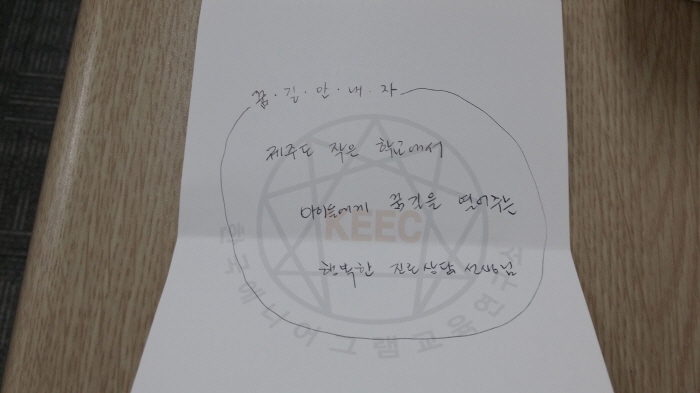 꿈·길·안·내·자
제주도 작은 학교에서
아이들에게 꿈길을 열어주는
행복한 진로상담 선생님
KEEC
한국에니어그램교육연구소